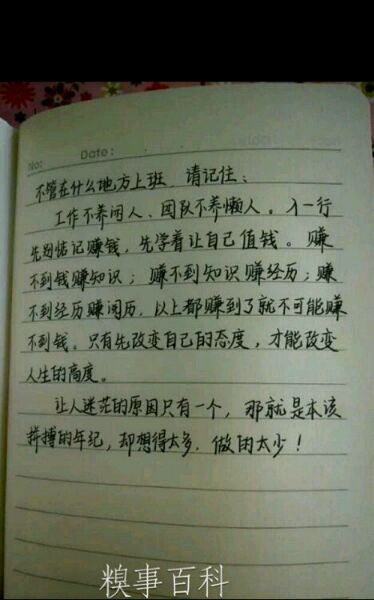 No:
Date:
不管在什么地方上班，请记住：
工作不养闲人、团队不养懒人。入一行
先别惦记赚钱，先学着让自己值钱。赚
不到钱赚知识；赚不到知识赚经历；赚
不到经历赚阅历，以上都赚到了就不可能赚
不到钱。只有先改变自己的态度，才能改变
人生的高度。
让人迷茫的原因只有一个，那就是本该
拼搏的年纪，却想得太多，做的太少！
糗事百科